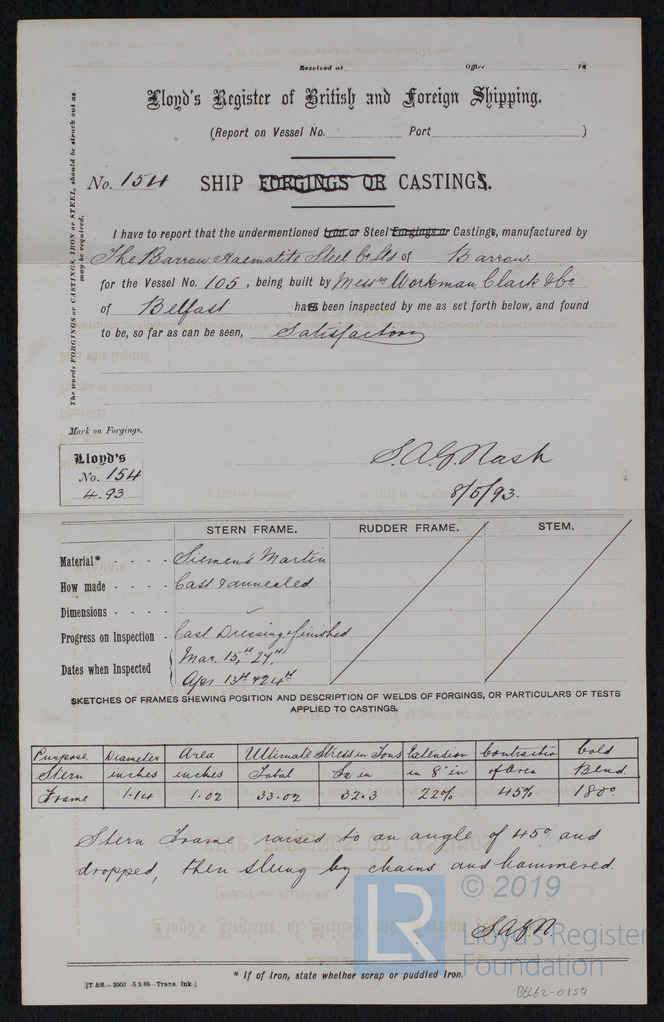 Received at Office 18
Lloyd's Register of British and Foreign Shipping.
(Report on Vessel No. Port )
No. 154 SHIP FORGINGS OR CASTINGS.
The words FORGINGS or CASTINGS, IRON or STEEL, should be struck out as may be required.
I have to report that the undermentioned Iron or Steel Forgings or Castings, manufactured by
The Barrow Haematite Steel Co Ltd of Barrow
for the Vessel No. 105, being built by Messrs Workman Clark & Co
of Belfast has been inspected by me as set forth below, and found
to be, so far as can be seen, Satisfactory
Mark on Forgings.
Lloyd's
No. 154
4.93
S.A.G. Nash
8/5/93.
STERN FRAME. RUDDER FRAME. STEM.
Material* - - - - Siemen's Martin
How made - - - - Cast & annealed
Dimensions - - - -
Progress on Inspection - Cast Dressing & finished
Dates when Inspected { Mar. 15th 27th
Apr 13th & 24th
SKETCHES OF FRAMES SHEWING POSITION AND DESCRIPTION OF WELDS OF FORGINGS, OR PARTICULARS OF TESTS
APPLIED TO CASTINGS.
Purpose Diameter Area Ultimate Stress in Tons Extension Contraction Cold
Stern inches inches Total in in 8" in of Area Bend.
Frame 1.14 1.02 33.02 32.3 22% 45% 180°
Stern Frame raised to an angle of 45° and
dropped, then slung by chains and hammered.
S.A.G.N.
LR © 2019
Lloyd's Register
Foundation
* If of Iron, state whether scrap or puddled Iron.
(T & R.—2000—5,3,86—Trans. Ink.)
BEL62-0159